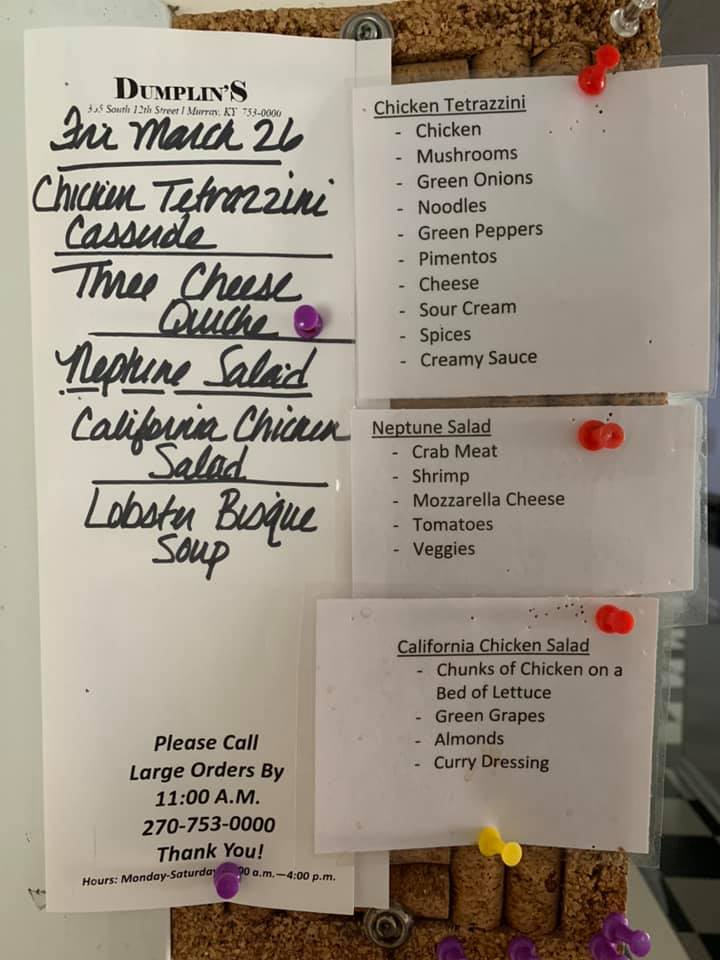 DUMPLIN'S
South 12th Street | Murray, KY 753-0000
Fri March 26
Chicken Tetrazzini
Casserole
Three Cheese
Quiche
Neptune Salad
California Chicken
Salad
Lobster Bisque
Soup
Please Call
Large Orders By
11:00 A.M.
270-753-0000
Thank You!
Hours: Monday-Saturday a.m.—4:00 p.m.
Chicken Tetrazzini
- Chicken
- Mushrooms
- Green Onions
- Noodles
- Green Peppers
- Pimentos
- Cheese
- Sour Cream
- Spices
- Creamy Sauce
Neptune Salad
- Crab Meat
- Shrimp
- Mozzarella Cheese
- Tomatoes
- Veggies
California Chicken Salad
- Chunks of Chicken on a
Bed of Lettuce
- Green Grapes
- Almonds
- Curry Dressing